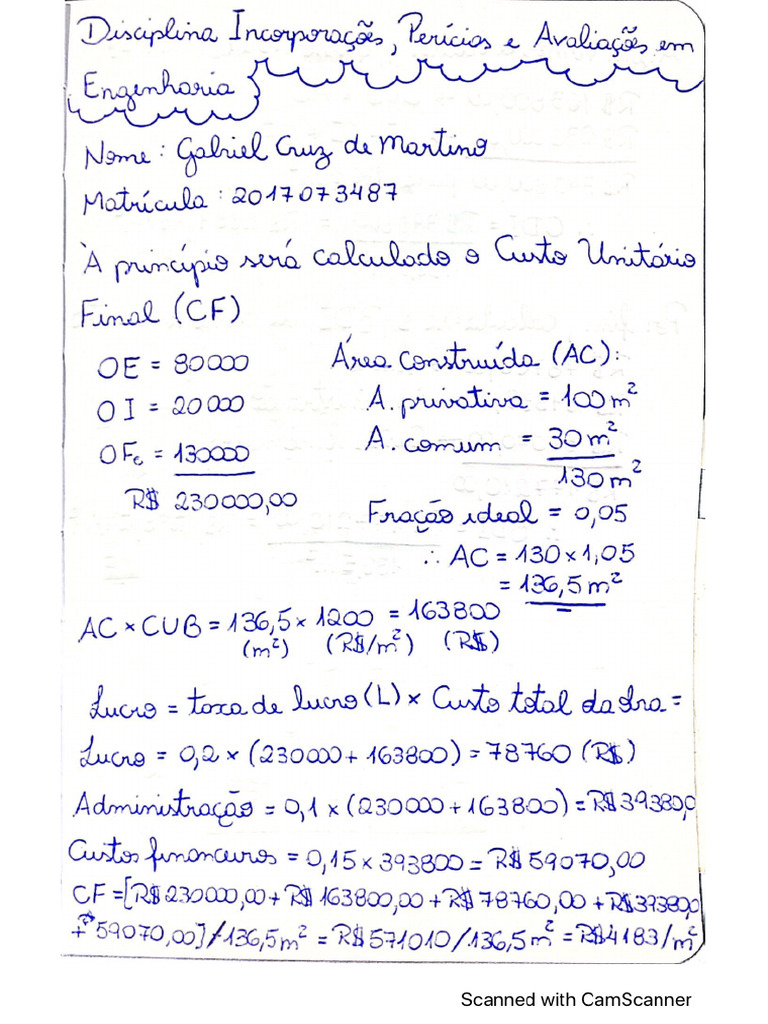 Disciplina Incorporações, Perícias e Avaliações em
Engenharia
Nome: Gabriel Cruz de Martino
Matrícula: 2017073487
À princípio será calculado o Custo Unitário
Final (CF)
OE = 80000
OI = 20000
OFe = 130000
R$ 230000,00
Área construída (AC):
A. privativa = 100 m²
A. comum = 30 m²
130 m²
Fração ideal = 0,05
∴ AC = 130 x 1,05
= 136,5 m²
AC x CUB = 136,5 x 1200 = 163800
(m²) (R$/m²) (R$)
Lucro = taxa de lucro (L) x Custo total da obra =
Lucro = 0,2 x (230000 + 163800) = 78760 (R$)
Administração = 0,1 x (230000 + 163800) = R$ 39380,0
Custos financeiros = 0,15 x 393800 = R$ 59070,00
CF = [R$ 230000,00 + R$ 163800,00 + R$ 78760,00 + R$ 39380,0
+ R$ 59070,00] / 136,5 m² = R$ 571010 / 136,5 m² = R$ 4183/m²
Scanned with CamScanner